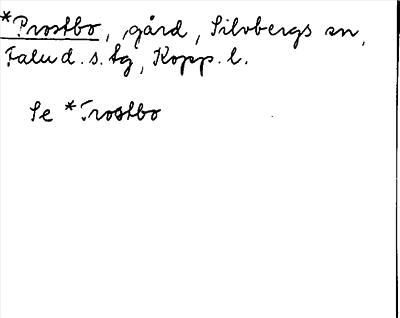 *Prostbo, gård, Silvbergs sn,
Falu d. s. tg, Kopp. l.
Se *Trostbo